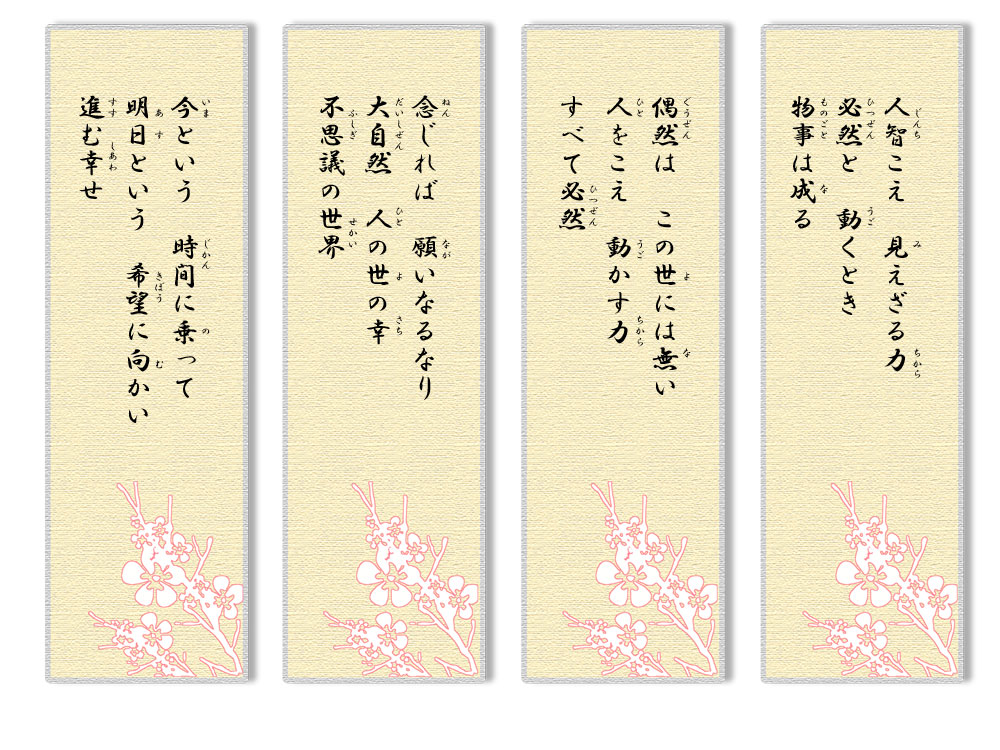 人智こえ　見えざる力
必然と　動くとき
物事は成る
偶然は　この世には無い
人をこえ　動かす力
すべて必然
念じれば　願いなるなり
大自然　人の世の幸
不思議の世界
今という　時間に乗って
明日という　希望に向かい
進む幸せ